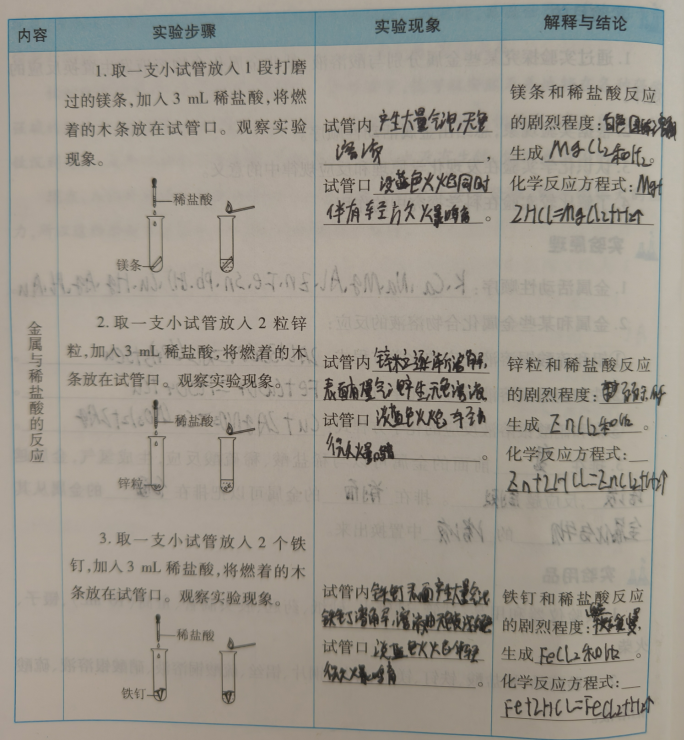 内容
实验步骤
实验现象
解释与结论
金属与稀盐酸的反应
1.取一支小试管放入1段打磨
过的镁条,加入3 mL稀盐酸,将燃
着的木条放在试管口。观察实验
现象。
稀盐酸
镁条
试管内产生大量气泡,无色
溶液,
试管口淡蓝色火焰同时
伴有轻微爆鸣声。
镁条和稀盐酸反应
的剧烈程度:
生成MgCl₂和H₂。
化学反应方程式:Mg+
2HCl=MgCl₂+H₂↑
2.取一支小试管放入2粒锌
粒,加入3 mL稀盐酸,将燃着的木
条放在试管口。观察实验现象。
稀盐酸
锌粒
试管内锌粒逐渐溶解,
表面有气泡产生,无色溶液
试管口淡蓝色火焰,
爆鸣
锌粒和稀盐酸反应
的剧烈程度:
生成ZnCl₂和H₂。
化学反应方程式:
Zn+2HCl=ZnCl₂+H₂↑
3.取一支小试管放入2个铁
钉,加入3 mL稀盐酸,将燃着的木
条放在试管口。观察实验现象。
稀盐酸
铁钉
试管内铁钉表面产生大量气泡
铁钉溶解,溶液由无色变浅绿色
试管口淡蓝色火焰
爆鸣声
铁钉和稀盐酸反应
的剧烈程度:缓慢,
生成FeCl₂和H₂。
化学反应方程式:
Fe+2HCl=FeCl₂+H₂↑